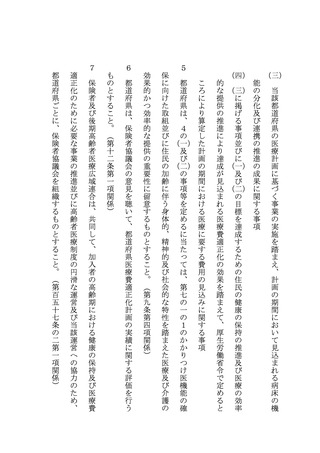 ㈢　当該都道府県の医療計画に基づく事業の実施を踏まえ、計画の期間において見込まれる病床の機
能の分化及び連携の推進の成果に関する事項
㈣　㈢に掲げる事項並びに㈠及び㈡の目標を達成するための住民の健康の保持の推進及び医療の効率
的な提供の推進により達成が見込まれる医療費適正化の効果を踏まえて、厚生労働省令で定めると
ころにより算定した計画の期間における医療に要する費用の見込みに関する事項
５　都道府県は、４の㈠及び㈡の事項等を定めるに当たっては、第七の一の１のかかりつけ医機能の確
保に向けた取組並びに住民の加齢に伴う身体的、精神的及び社会的な特性を踏まえた医療及び介護の
効果的かつ効率的な提供の重要性に留意するものとすること。（第九条第四項関係）
６　都道府県は、協議会の意見を聴いて、都道府県医療費適正化計画の実績に関する評価を行う
ものとすること。（第十二条第一項関係）
７　保険者及び後期高齢者医療広域連合は、共同して、加入者の高齢期における健康の保持及び医療費
適正化のために必要な事業の推進並びに高齢者医療制度の円滑な運営及び当該運営への協力のため、
都道府県ごとに、保険者協議会を組織するものとすること。（第百五十七条の二第一項関係）